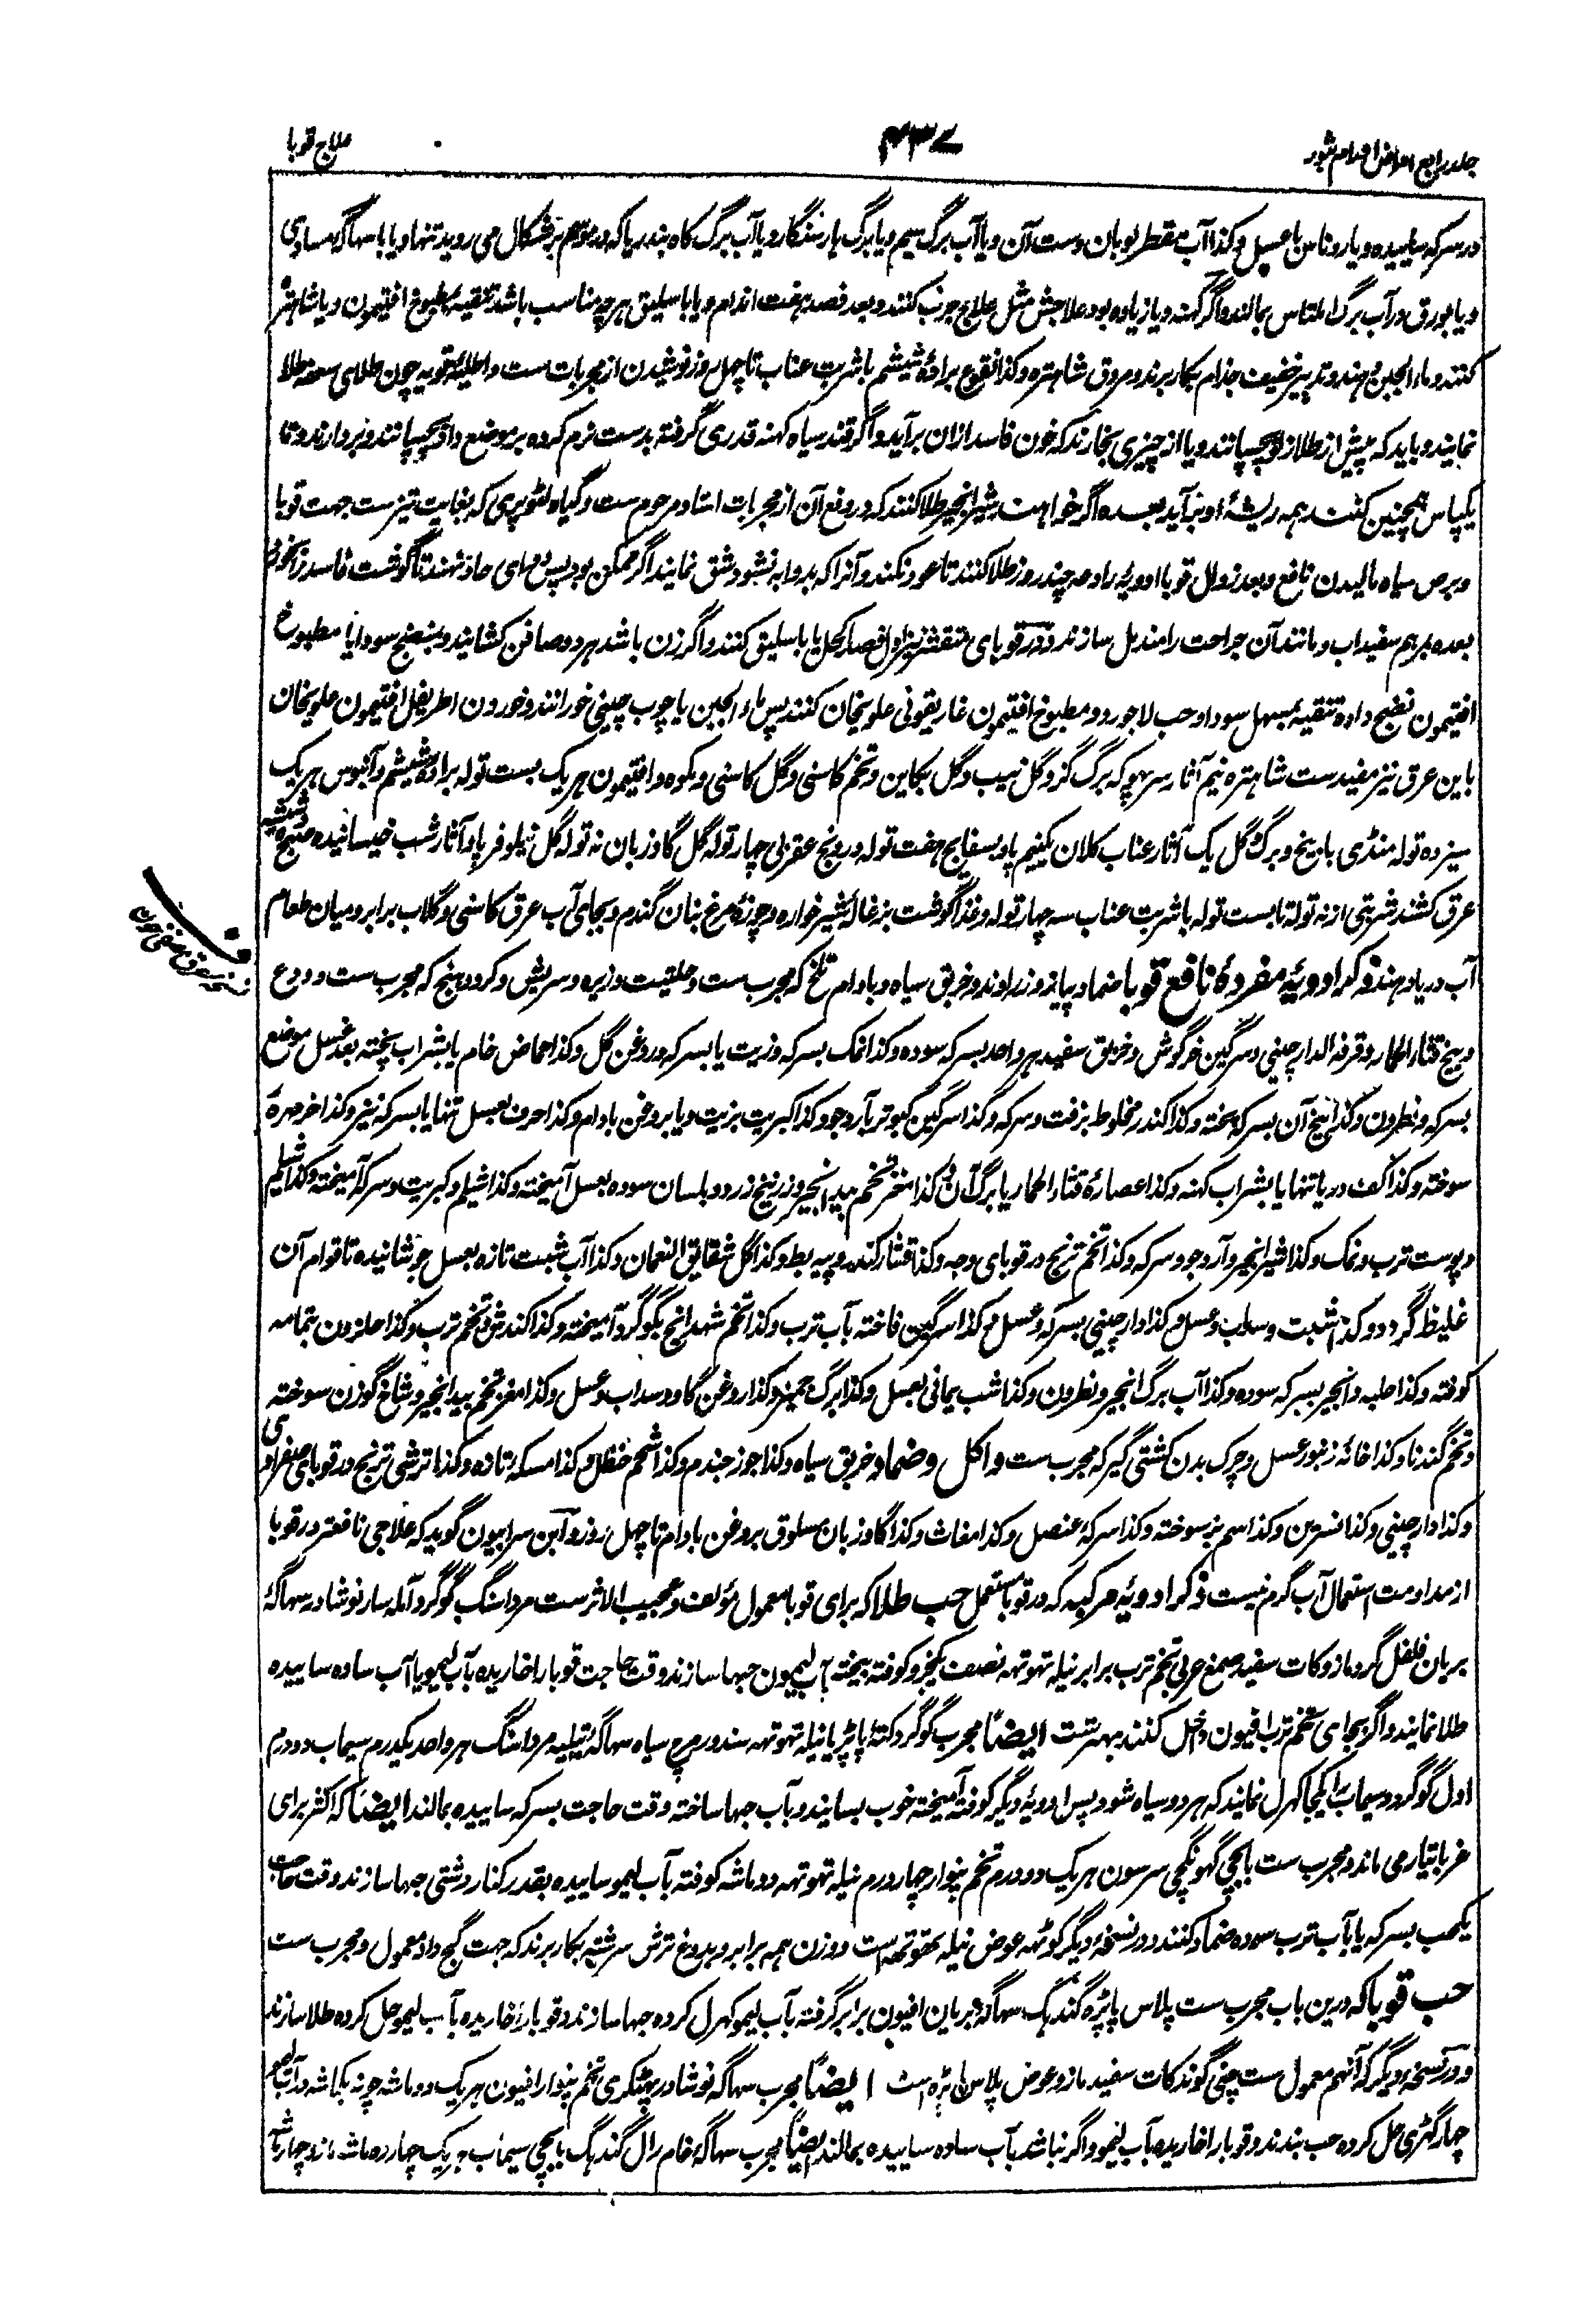 جلد رابع امراض اقسام بثور
۴۳۷
علاج قوبا
در سرکه ساییده و یا روناس با عسل و کذا آب مقطر لوبان دست آن و یا آب برگ سیم و یا برگ پارسنگار و یا آب برگ کاه بندریا که در موسم برشکال می روید تنها و یا با سهاگه مساوی
و یا بورق در آب برگ املتاس بمالند و اگر کهنه و یا زیاده بود علاجش مثل علاج جرب کنند و بعد فصد هفت اندام و یا باسلیق هرچه مناسب باشد تنقیه بمطبوخ افتیمون و یا شاهتره
کنند و ماء الجبن دهند و تدبیر خفیف جذام بکار برند و مروق شاهتره و کذا نقوع براده شیشم با شربت عناب تا چهل روز نوشیدن از مجربات ست و اطلیه قویه چون طلای سعفه طلا
نمایند و باید که پیش از طلا زلو چسپانند و یا از چیزی بخارند که خون فاسد ازان برآید و اگر قند سیاه کهنه قدری گرفته بدست نرم کرده بر موضع داد چسپانند و بردارند و تا
یکپاس همچنین کنند همه ریشه او برآید بعده اگر خواهند شیر انجیر طلا کنند که در رفع آن از مجربات استاد مرحوم ست و گیاه لٹوپری که بغایت تیز ست جهت قوبا
و برص سیاه مالیدن نافع و بعد زوال قوبا ادویه رادعه چند روز طلا کنند تا عود نکند و آنرا که بدوا به نشود شق نمایند اگر ممکن بود پس دوای حاد نهند تا گوشت فاسد را بخورد
بعده بمرهم سفیداب و مانند آن جراحت را مندمل سازند و در قوبای متقشر نیز اول فصد اکحل یا باسلیق کنند و اگر زن باشد هر دو صافن کشایند و بمنضج سودا یا مطبوخ
افتیمون نضج داده تنقیه بمسهل سودا و حب لاجورد و مطبوخ افتیمون غاریقونی علویخان کنند پس ماء الجبن یا چوب چینی خورانند و خوردن اطریفل افتیمون علویخان
باین عرق نیز مفید ست شاهتره نیم آثار سرپهوکه برگ گز و گل نیب و گل بکاین و تخم کاسنی و گل کاسنی و مکوه و افتیمون هر یک بست توله براده شیشم و آبنوس هر یک
سیزده توله منڈی با بیخ و برگ و گل یک آثار عناب کلان یکنیم پاو بسفایج هفت توله درونج عقربی چهار توله گل گاوزبان نه توله گل نیلوفر پاو آثار شب خیسانیده صبح دو شیشه
عرق کشند شربتی از نه توله تا بست توله با شربت عناب سه چهار توله و غذا گوشت بزغاله شیر خواره و چوزه مرغ بنان گندم و بجای آب عرق کاسنی و گلاب برابر و میان طعام
آب دریا دهند ذکر ادویه مفرده نافع قوبا ضماد پیاز و زراوند و خربق سیاه و بادام تلخ که مجرب ست و حلتیت و زیره و سریش و کرودهنج که مجرب ست و ودع
و بیخ قثاء الحمار و قرفة الدارچینی و سرگین خرگوش و خربق سفید هر واحد بسرکه سوده و کذا نمک بسرکه و زیت یا بسرکه و روغن گل و کذا حماض خام یا بشراب پخته بعد غسل موضع
بسرکه و نطرون و کذا بیخ آن بسرکه پخته و کذا کندر مخلوط بزفت و سرکه و کذا سرگین کبوتر بآرد جو و کذا کبریت بزیت و یا بروغن بادام و کذا حرف بعسل تنها یا بسرکه نیز و کذا خرمهره
سوخته و کذا کف دریا تنها یا بشراب کهنه و کذا عصاره قثاء الحمار یا برگ آن و کذا مغز تخم بیدانجیر و زرنیخ زرد و بلسان سوده بعسل آمیخته و کذا شیلم و کبریت و سرکه آمیخته و کذا شیلم
و پوست ترب و نمک و کذا شیر انجیر و آرد جو و سرکه و کذا تخم ترنج در قوبای وجه و کذا قثار کندر و پیه بط و کذا گل شقایق النعمان و کذا آب شبت تازه بعسل جوشانیده تا قوام آن
غلیظ گردد و کذا شبت و سداب و عسل و کذا دارچینی بسرکه و عسل و کذا سرگین فاخته بآب ترب و کذا تخم شهدانج بگوگرد آمیخته و کذا کندش و تخم ترب و کذا حلزون بتمامه
کوفته و کذا حلبه و انجیر بسرکه سوده و کذا آب برگ انجیر و نطرون و کذا شب یمانی بعسل و کذا برگ جمیز و کذا روغن گاو و سداب و عسل و کذا مغز تخم بیدانجیر و شاخ گوزن سوخته
و تخم گندنا و کذا خانه زنبور عسل و چرک بدن کشتی گیر که مجرب ست و اکل و ضماد خربق سیاه و کذا جوز جندم و کذا شحم حنظل و کذا مسکه تازه و کذا ترشی ترنج در قوبای صفراوی
و کذا دارچینی و کذا نسرین و کذا سم بز سوخته و کذا سرکه عنصل و کذا مغاث و کذا گاوزبان مسلوق بروغن بادام تا چهل روز و ابن سرابیون گوید که علاجی نافعتر در قوبا
از مداومت استعمال آب گرم نیست ذکر ادویه مرکبه که در قوبا مستعمل حب طلا که برای قوبا معمول مؤلف و عجیب الاثر ست مرداسنگ گوگرد آمله سار نوشادر سهاگه
بریان فلفل گرد مازو کات سفید صمغ عربی تخم ترب برابر نیله تهوتهه نصف یکجزو کوفته بیخته بآب لیمون حبها سازند وقت حاجت قوبا را خاریده بآب لیمو یا آب ساده ساییده
طلا نمایند و اگر بجای تخم ترب افیون داخل کنند بهتر ست ایضاً مجرب گوگرد کته پاپڑیا نیله تهوتهه سندور مرچ سیاه سهاگه تیلیه مرداسنگ هر واحد یکدرم سیماب دو درم
اول گوگرد و سیماب را یکجا کهرل نمایند که هر دو سیاه شود پس ادویه دیگر کوفته آمیخته خوب بسایند و بآب حبها ساخته وقت حاجت بسرکه ساییده بمالند ایضاً که اکثر برای
غربا تیار می ماند و مجرب ست بابچی گهونگچی سرسون هر یک دو درم تخم پنوار چهار درم نیله تهوتهه دو ماشه کوفته بآب لیمو ساییده بقدر کنار دشتی حبها سازند وقت حاجت
یکحب بسرکه یا بآب ترب سوده ضماد کنند و در نسخه دیگر کوٹهه عوض نیله تهوتهه است و وزن همه برابر و بدوغ ترش سرشته بکار برند که جهت گج داد معمول و مجرب ست
حب قوبا که درین باب مجرب ست پلاس پاپڑه گندهک سهاگه بریان افیون برابر گرفته بآب لیمو کهرل کرده حبها سازند و قوبا را خاریده بآب لیمو حل کرده طلا سازند
و در نسخه دیگر که آنهم معمول ست چنی گوند کات سفید مازو عوض پلاس پاپڑه است ایضاً مجرب سهاگه نوشادر پهٹکری تخم پنوار افیون هر یک دو ماشه چونه یکماشه در آب لیمو
چهار گهڑی حل کرده حب بندند و قوبا را خاریده بآب لیمو و اگر نباشد بآب ساده ساییده بمالند ایضاً مجرب سهاگه خام رال گندهک بابچی سیماب هر یک چهارده ماشه مازو چهار ماشه
نسخه عرق مصفی خون